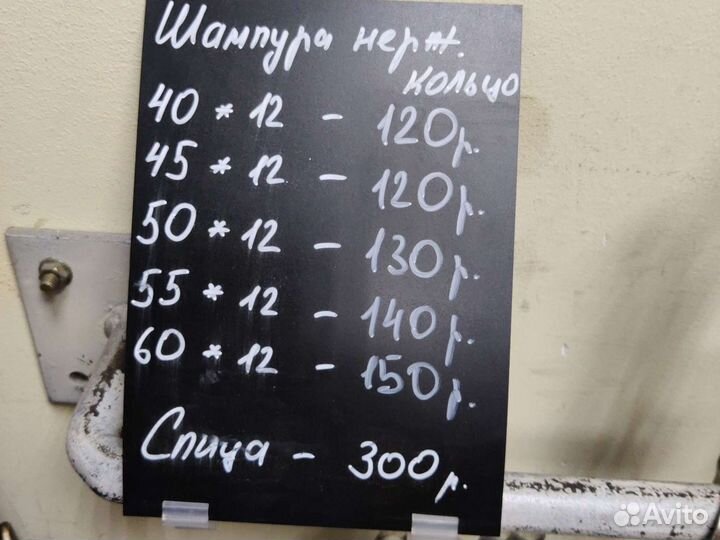 Шампура нерж.
кольцо
40 * 12 - 120р.
45 * 12 - 120р.
50 * 12 - 130р.
55 * 12 - 140р.
60 * 12 - 150р.
Спица - 300р.
Avito